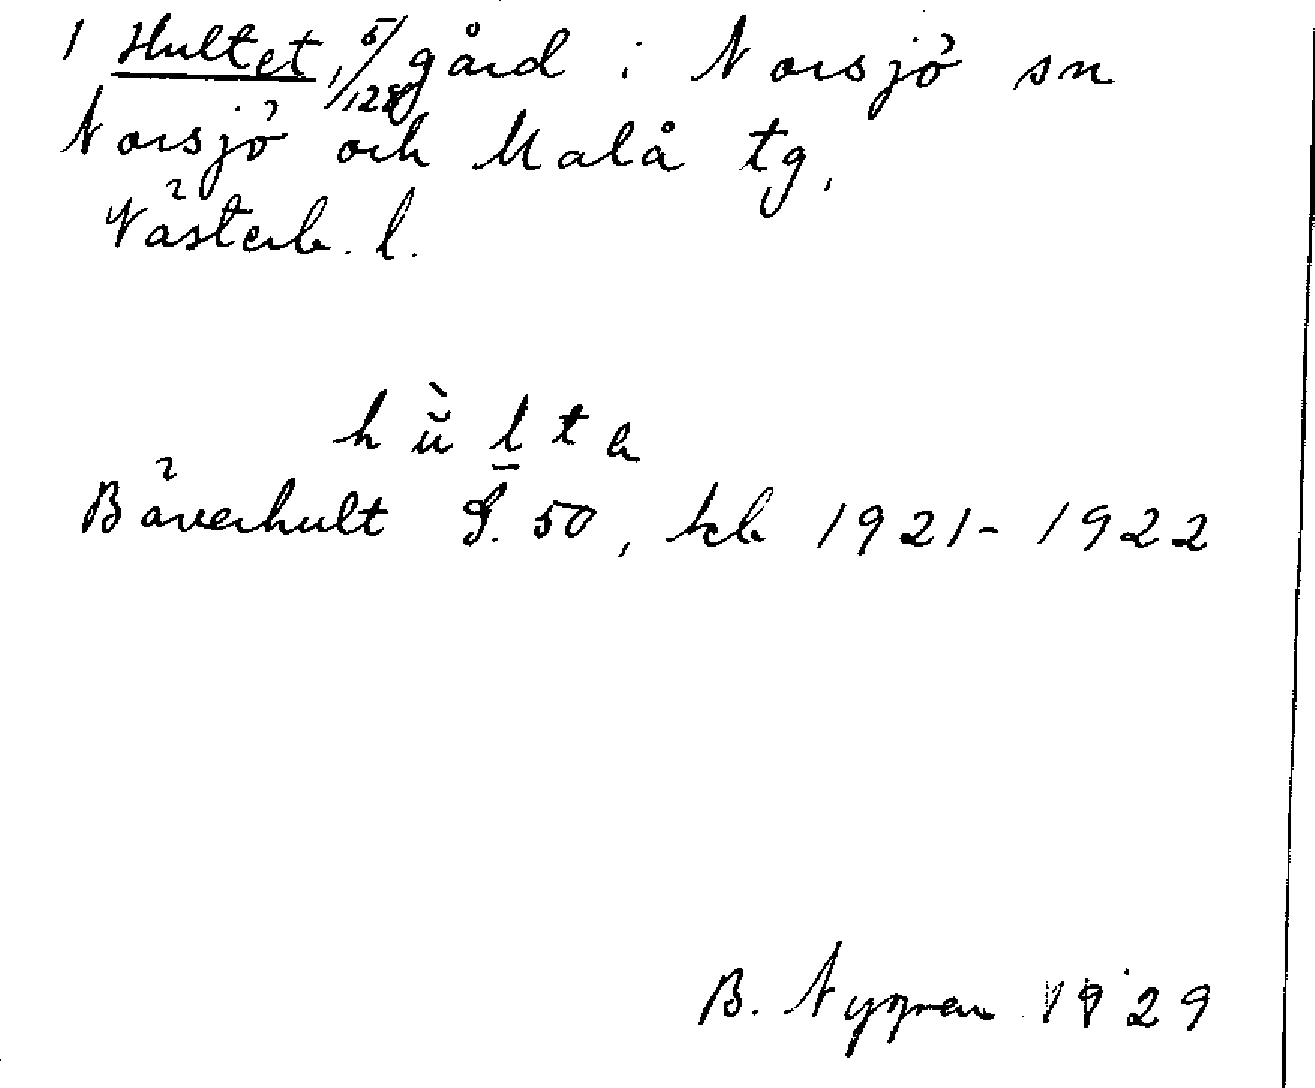 1 Hultet, 5/128 gård i Norsjö sn
Norsjö och Malå tg,
Västerb. l.
hu᷆̀lta
Bäverhult S. 50, kb 1921-1922
B. Nygren 1929